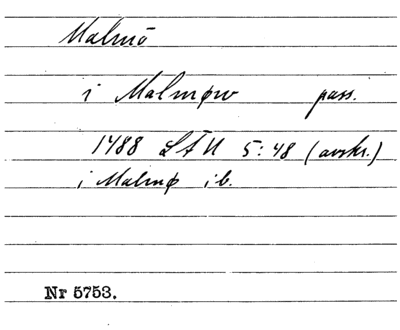 Malmö
i Malmøw pass.
1488 LÄU 5:48 (avskr.)
i Malmø ib.
Nr 5753.